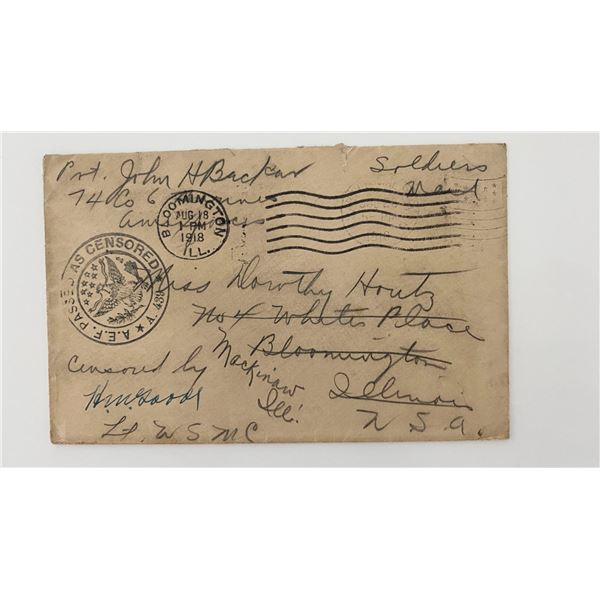 Pvt. John H Backar
Soldiers
Mail
74 Co 6
BLOOMINGTON
AUG 18
1 PM
1918
ILL.
A.E.F. PASSED AS CENSORED
Miss Dorothy Houtz
No 4 White's Place
Bloomington
Mackinaw
Ill.
Illinois
U.S.A.
Censored by
H.M. Goode
Lt. U S M C